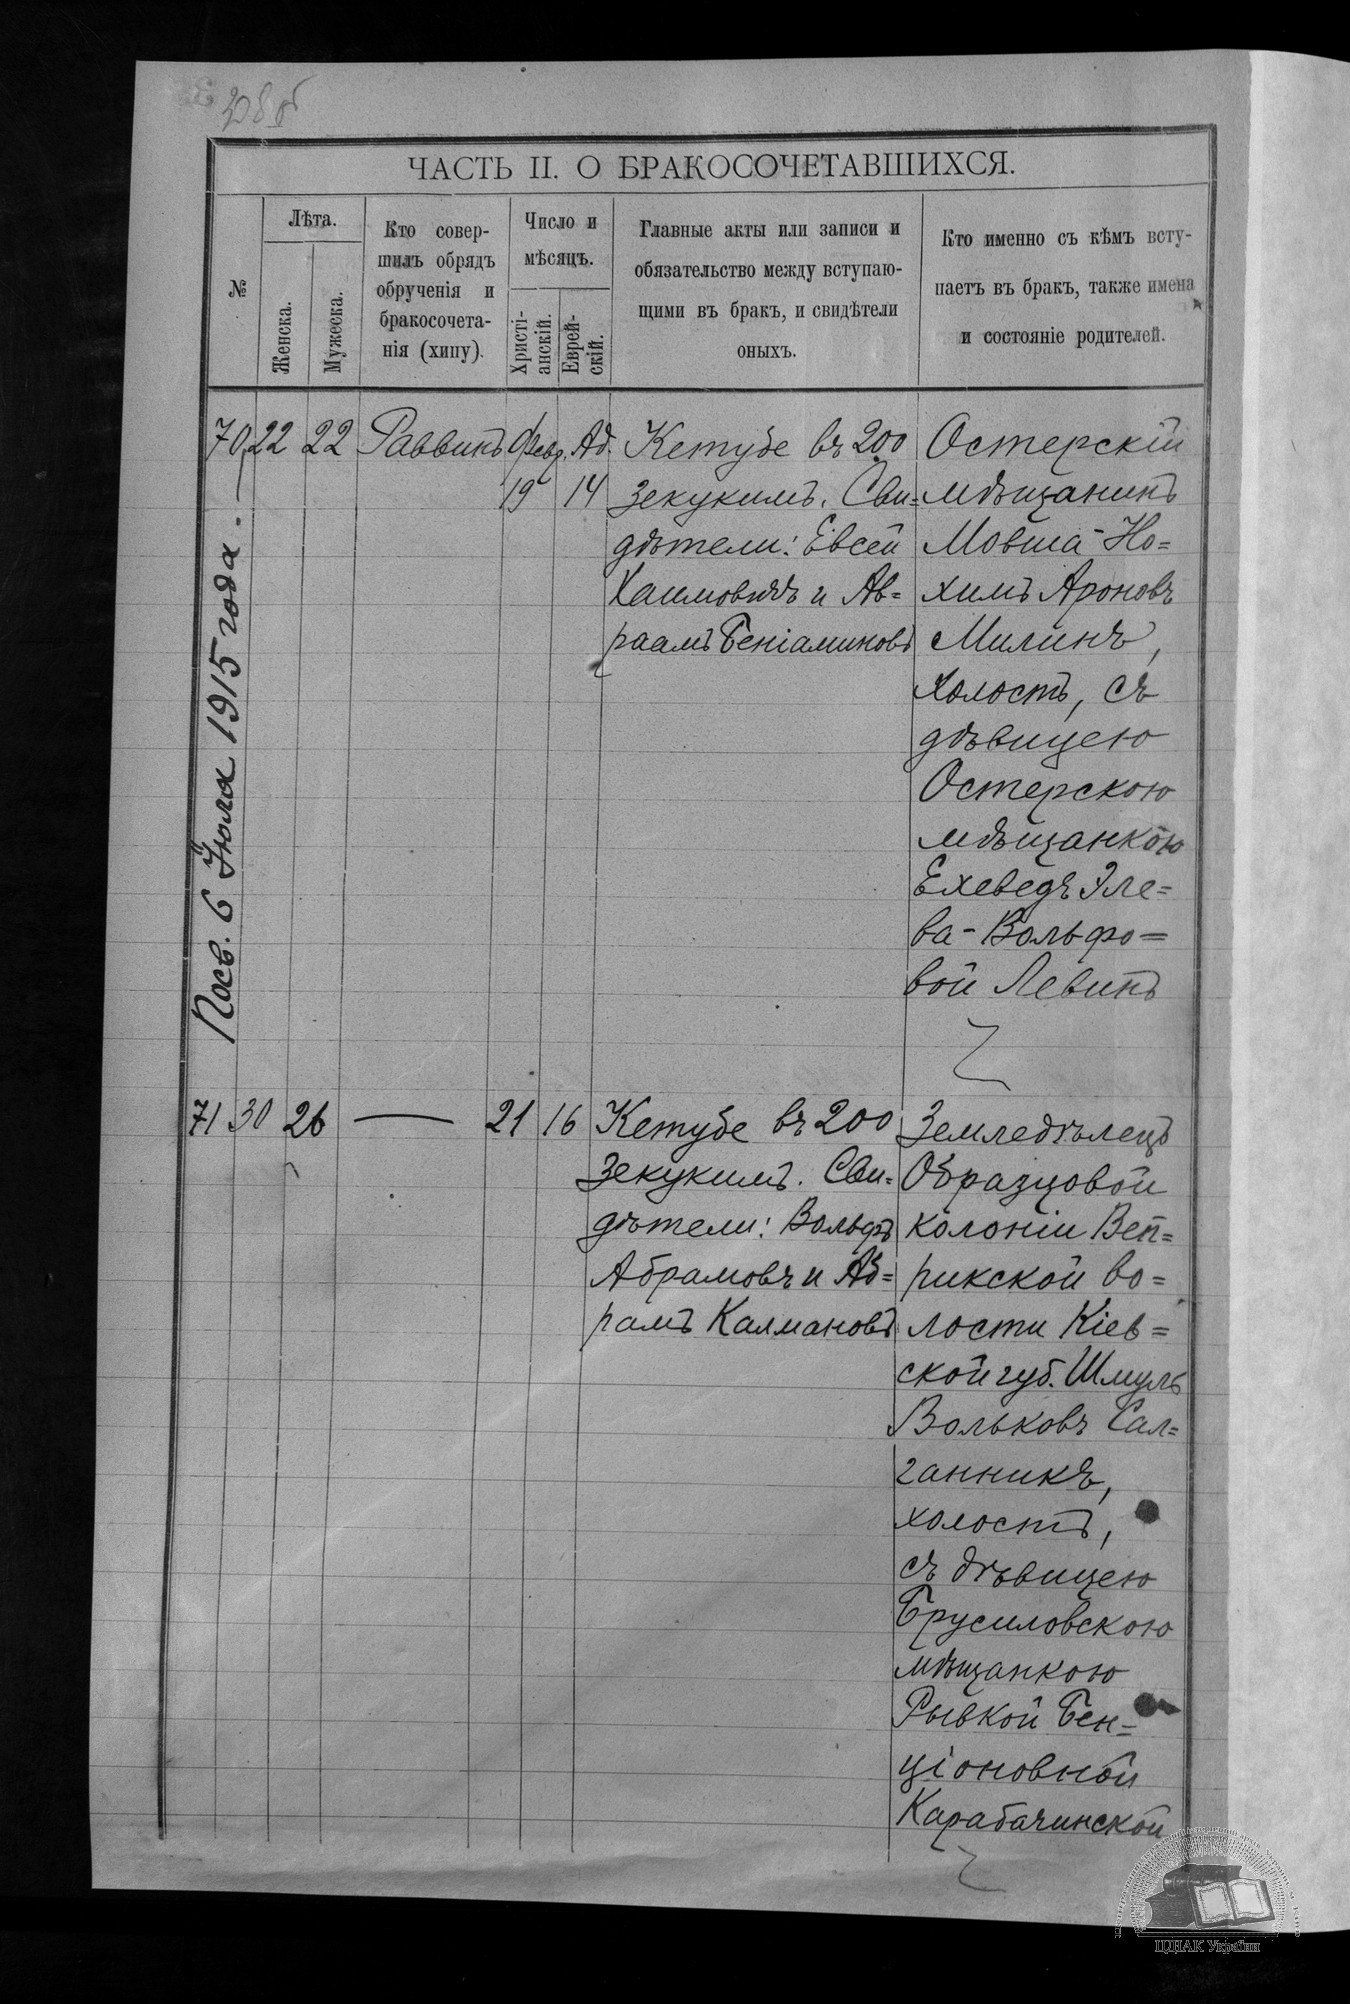 ЧАСТЬ II. О БРАКОСОЧЕТАВШИХСЯ.
№
Лѣта.
Женска.
Мужеска.
Кто совер-
шилъ обрядъ
обрученія и
бракосочета-
нія (хипу).
Число и
мѣсяцъ.
Христі-
анскій.
Еврей-
скій.
Главные акты или записи и
обязательство между вступаю-
щими въ бракъ, и свидѣтели
оныхъ.
Кто именно съ кѣмъ всту-
паетъ въ бракъ, также имена
и состояніе родителей.
70 22 22 Раввинъ Февр. Ад.
19 14
Кетубе въ 200
зекукимъ. Сви=
дѣтели: Евсей
Хаимовичъ и Ав=
раамъ Беніаминовъ
Остерскій
мѣщанинъ
Мовша-Но=
химъ Ароновъ
Милинъ,
холостъ, съ
дѣвицею
Остерскою
мѣщанкою
Ехеведъ Эле=
ва-Вольфо=
вой Левинъ
Посв. 6 Іюля 1915 года.
71 30 26 — 21 16
Кетубе въ 200
зекукимъ. Сви=
дѣтели: Вольфъ
Абрамовъ и Аб=
рамъ Калмановъ
Земледѣлецъ
Образцовой
колоніи Веп=
рикской во=
лости Кіев=
ской губ. Шмуль
Вольковъ Сал=
ганникъ,
холостъ,
съ дѣвицею
Брусиловскою
мѣщанкою
Рывкой Бен=
ціоновной
Карабачинской
ЦДІАК України